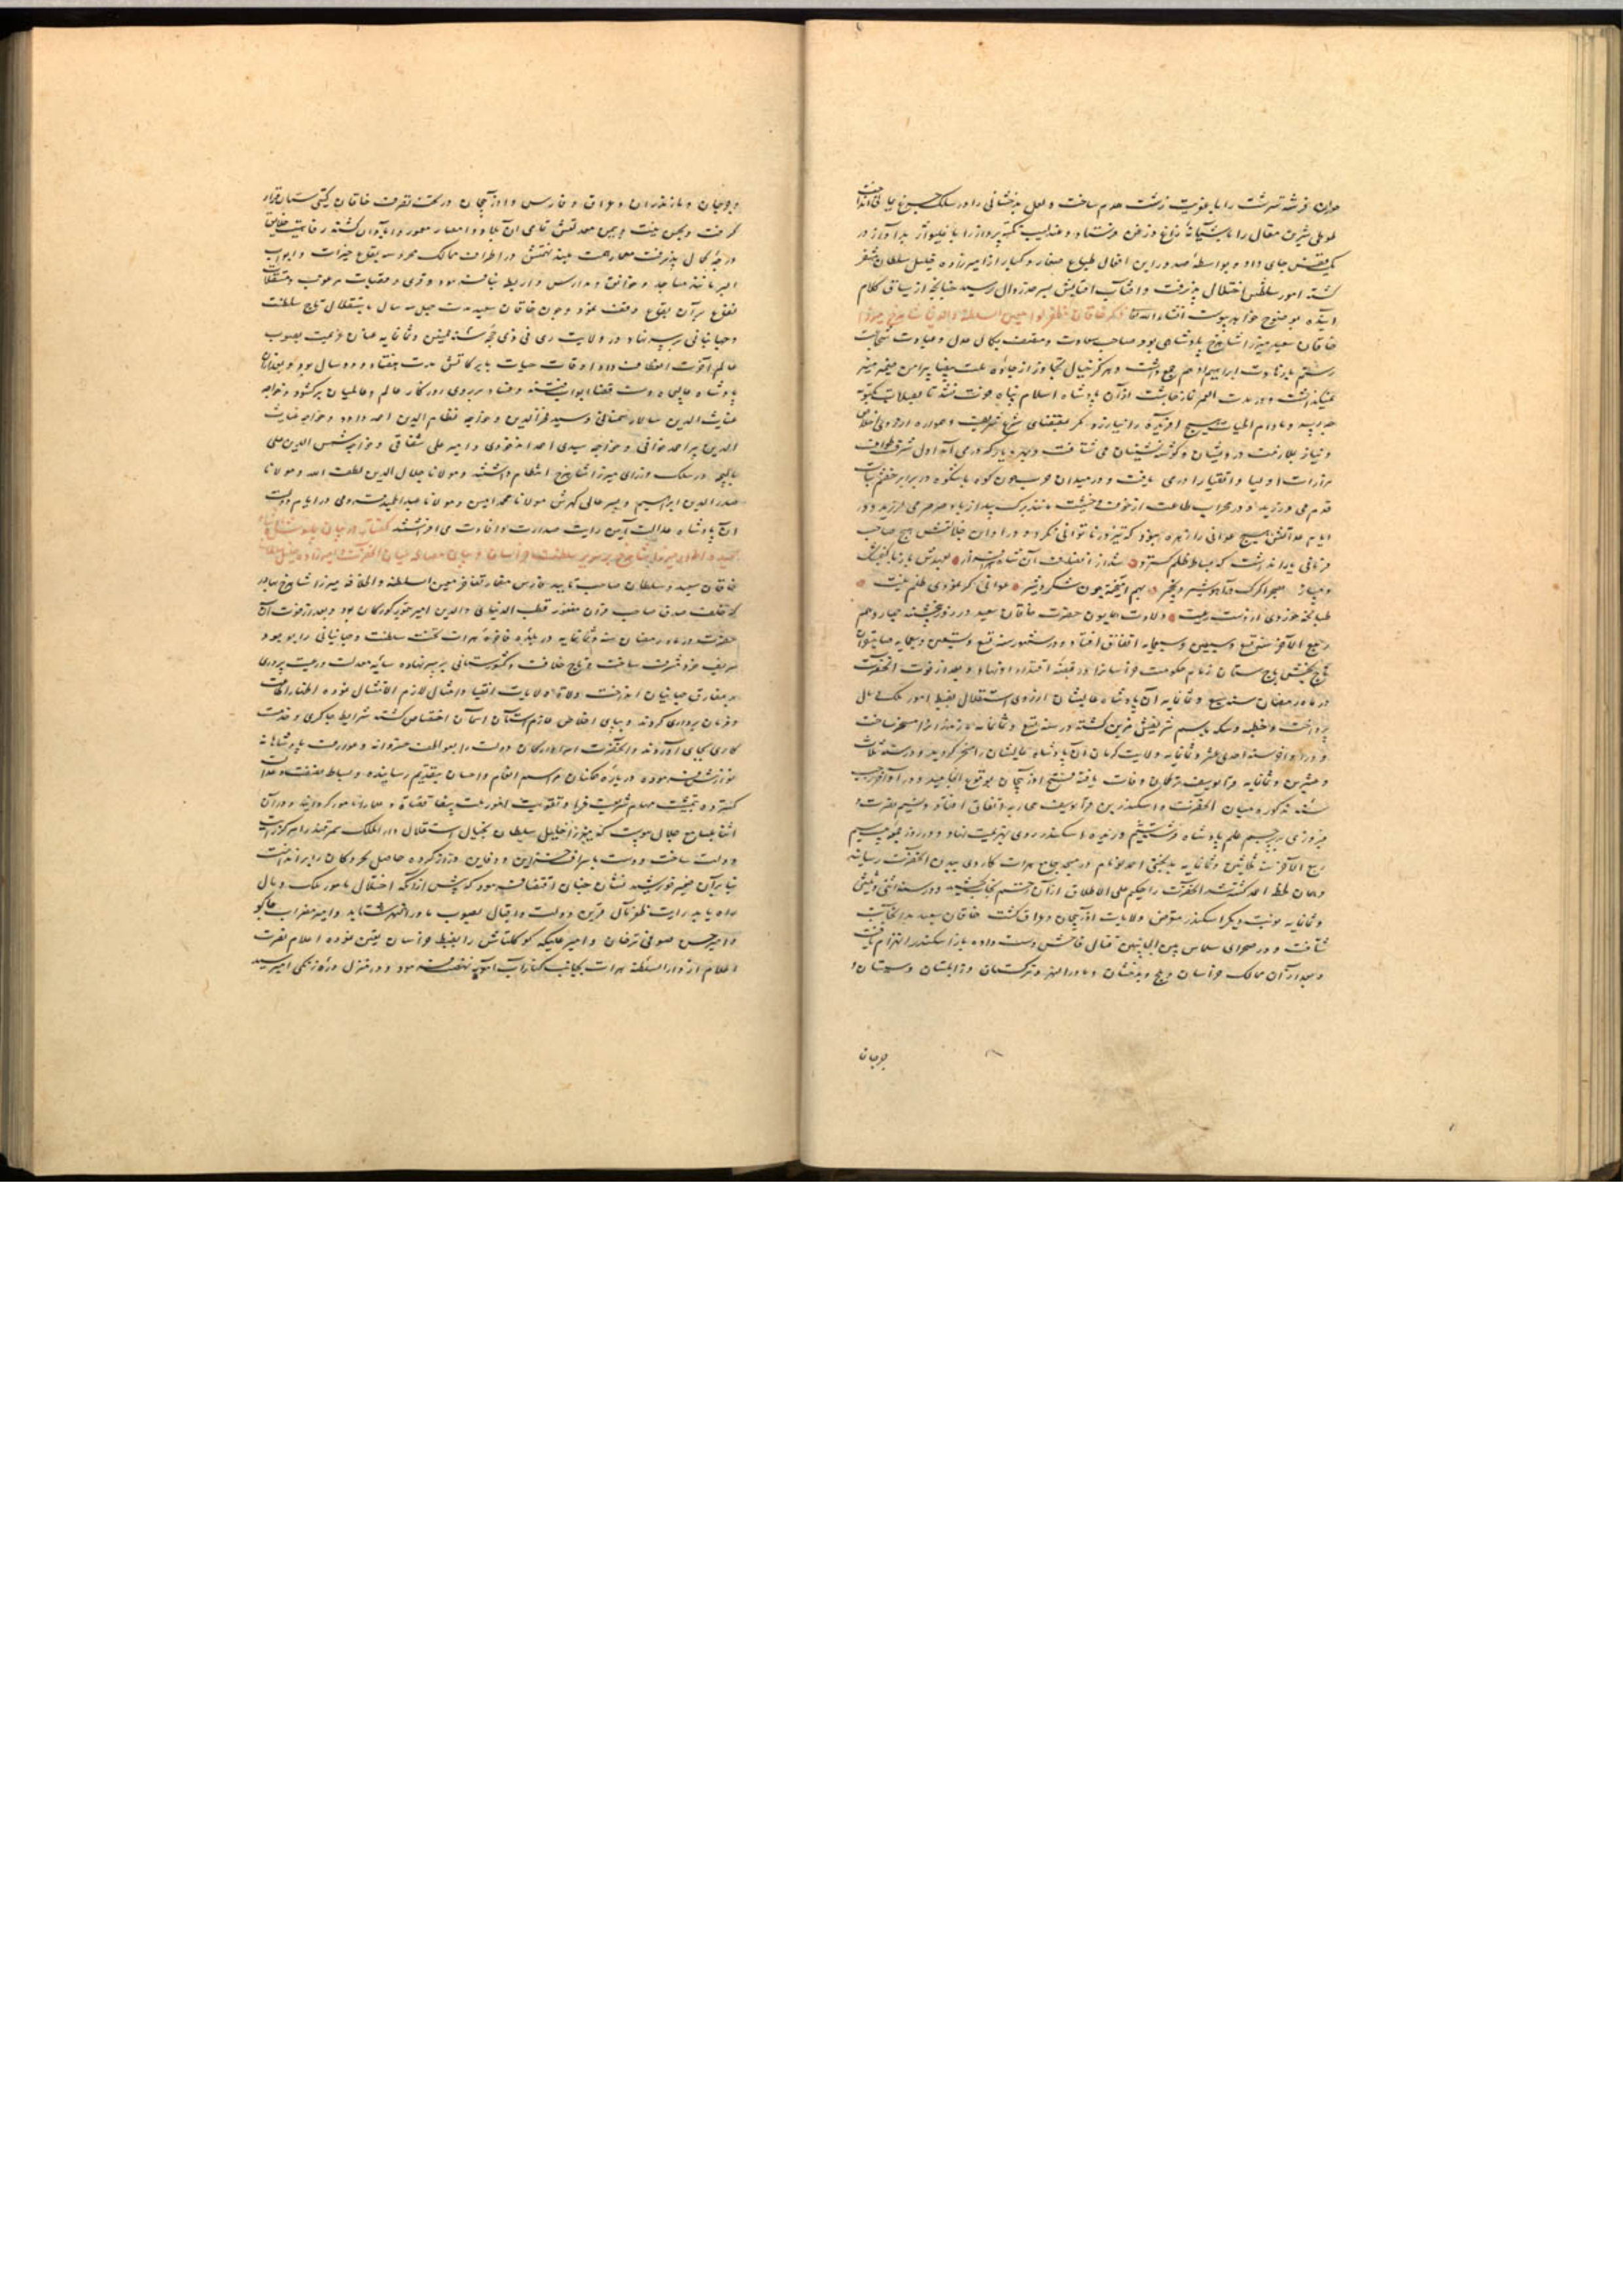 حوران فرشته سرشت را با عفریت زشت همدم ساخت و لعل بدخشانی را در سلک
طوطی شیرین مقال را بآشیانهٔ زاغ و زغن فرستاد و عندلیب نکته پرداز را با
جای داد و بواسطهٔ صدور این افعال طباع صغار و کبار از امیرزاده خلیل سلطان متنفر
کشته امور سلطنتش اختلال پذیرفت و آفتاب اقبالش بسرحد زوال رسید چنانچه از سیاق کلام
آینده بوضوح خواهد پیوست انشاء الله تعالی ذکر خاقان مظفر لوا معین السلطنة والدنیا شاهرخ میرزا
خاقان سعید میرزا شاهرخ پادشاهی بود صاحب سعادت و متصف بکمال عدل و عبادت شجاعت
رستم با زهادت ابراهیم ادهم جمع داشت و هرگز خیال تجاوز از جادهٔ ملت بیضا پیرامن ضمیر منیر
نمیگذاشت و در مدت العمر نماز از آن پادشاه اسلام پناه فوت نشد
و مادام الحیات هیچ آفریده را نیازرد مگر بمقتضای شرع شریعت و همواره از روی اخلاص
و نیاز بملازمت درویشان و گوشه نشینان می شتافت و بهر دیار که در می آمد اول شرف طواف
مزارات اولیا و اتقیا را در می یافت و در میدان حرب چون کوه باشکوه در برابر خصم ثبات
قدم می ورزید و در محراب طاعت از خوف و خشیت مانند برگ بید از باد صرصر می لرزید و در
ایام عدالتش هیچ عوانی را زهره نبود که تیز در ناتوانی نگرد و در اوان خلافتش هیچ صاحب
فرمانی یارا نداشت که بساط ظلم گسترد شد از انصاف آن شاه سرافراز بعهدش باز با
و دمساز بصحرا گرگ و آهو شیر و نخجیر بهم آمیخته چون شکر و شیر عوانی گر نمودی ظلم نیت
طپانچه خوردی از دست رعیت ولادت همایون حضرت خاقان سعید در روز پنجشنبه چهاردهم
ربیع الآخر سنه تسع و سبعین و سبعمایه اتفاق افتاد و در شهور سنه تسع و تسعین و سبعمایه صاحبقران
تاج بخش باج ستان زمام حکومت خراسانرا در قبضهٔ اقتدار او نهاد و بعد از فوت آنحضرت
در ماه رمضان سنه سبع و ثمانمایه آن پادشاه عالیشان از روی استقلال بضبط امور ملک و مال
پرداخت و خطبه و سکه باسم شریفش مزین گشته در سنه تسع و ثمانمایه مازندرانرا مسخر ساخت
و در اواخر سنه احدی عشر و ثمانمایه ولایت کرمان آن پادشاه عالیشان را مسخر گردید و در سنه ثلاث
و عشرین و ثمانمایه قرا یوسف ترکمان وفات یافته فتح آذربیجان بوقوع انجامید و در اواخر رجب
سنه مذکوره میان آنحضرت و اسکندر بن قرا یوسف محاربه اتفاق افتاد و نسیم نصرت و
فیروزی بر پرچم علم پادشاه وزیده اسکندر روی بهزیمت نهاد و در روز جمعه بیست و سیم
ربیع الآخر سنه ثلاثین و ثمانمایه بدبختی احمد لر نام در مسجد جامع هرات کاردی ببدن آنحضرت رسانید
و همان لحظه احمد کشته شد آنحضرت را حکیم علی الاطلاق از آن زخم نجات بخشید و در سنه اثنی و ثلثین
و ثمانمایه نوبت دیگر اسکندر متعرض ولایات آذربیجان و عراق گشت خاقان سعید بدانجانب
شتافت و در صحرای سلماس بین الجانبین قتال فاحش دست داده باز اسکندر انهزام یافت
و بعد از آن ممالک خراسان و بلخ و بدخشان و ماوراء النهر و ترکستان و زابلستان و سیستان و
جرجان
و جرجان و مازندران و عراق و فارس و آذربیجان در تحت تصرف خاقان گیتی ستان قرار
گرفت و بحسن نیت و یمن معدلتش تمامی آن بلاد و امصار معمور و آبادان گشته رفاهیت خلایق
درجهٔ کمال پذیرفت معمار همت بلند نهمتش در اطراف ممالک محروسه بقاع خیرات و ابواب
البر مانند مساجد و خوانق و مدارس و اربطه بنا فرمود و قری و قصبات مرغوب و مستغلات
نفاع بر آن بقاع وقف نمود و چون خاقان سعید مدت چهل سه سال باستقلال تاج سلطنت
و جهانبانی بر سر نهاد در ولایت ری فی ذی حجه سنه خمسین و ثمانمایه عنان عزیمت بصوب
عالم آخرت انعطاف داد اوقات حیات بابرکاتش مدت هفتاد و دو سال بود و بعد از آن
پادشاه عالیجاه دست قضا ابواب فتنه و فساد بر روی روزگار عالم و عالمیان برگشود و خواجه
غیاث الدین سالار سمنانی و سید فخر الدین و خواجه نظام الدین احمد داود و خواجه غیاث
الدین پیر احمد خوافی و خواجه سیدی احمد و امیر علی شقانی و خواجه شمس الدین علی
بالیچه در سلک وزرای میرزا شاهرخ انتظام داشتند و مولانا جلال الدین لطف الله و مولانا
صدر الدین ابراهیم و پسر عالی گهرش مولانا محمد امین و مولانا عبد الحمید در ایام دولت
آن پادشاه عدالت آیین رایت صدارت و افادت می افراشتند گفتار در بیان
میرزا شاهرخ بر سریر سلطنت خراسان و بیان مصالحه میان آنحضرت و امیرزاده خلیل سلطان
خاقان سعید و سلطان صاحب تایید فارس مضمار تفاخر معین السلطنة و الخلافه میرزا شاهرخ بهادر
که خلف صدق صاحب قران مغفور قطب الدنیا و الدین امیر تیمور گورکان بود و بعد از فوت آن
حضرت در ماه رمضان سنه و ثمانمایه در بلدهٔ فاخره هرات تخت سلطنت و جهانبانی را بوجود
شریف خود مشرف ساخت و تاج خلافت و کشورستانی بر سر نهاده سایهٔ معدلت و رعیت پروری
بر مفارق جهانیان انداخت ولاة ولایات انقیاد و امتثال لازم الامتثال نموده اظهار اطاعت
و فرمان برداری کردند و بپای اخلاص ملازم آستان آسمان اختصاص گشته شرایط چاکری و خدمت
کاری بجای آوردند و آنحضرت امرا و ارکان دولت را بعواطف خسروانه و عوارف پادشاهانه
نوازش فرموده در بارهٔ همگنان مراسم انعام و احسان بتقدیم رسانیده و بساط نصفت و عدالت
گسترده بتمشیت مهام شریعت غرا و تقویت امور ملت بیضا قضاة و علما را مامور گردانید و در آن
اثنا بمسامع جلال پیوست که میرزا خلیل سلطان بخیال استقلال دار الملک سمرقند را مرکز رایت
دولت ساخت و دست باسراف خزاین و دفاین دراز کرده حاصل بحر و کان را برانداخت
بنا بر آن ضمیر خورشید نشان چنان اقتضا فرمود که پیش از آنکه اختلال بامور ملک و مال
راه یابد رایت ظفر مآل قرین دولت و اقبال بصوب ماوراء النهر شتابد و امیر مضراب چاکو
و امیر حسن صوفی ترخان و امیر علیکه کوکلتاش را بضبط خراسان تعیین نموده اعلام نصرت
اعلام از دار السلطنه هرات بجانب کنار آب آمویه نهضت فرمود و در منزل درهٔ زنگی امیر سید